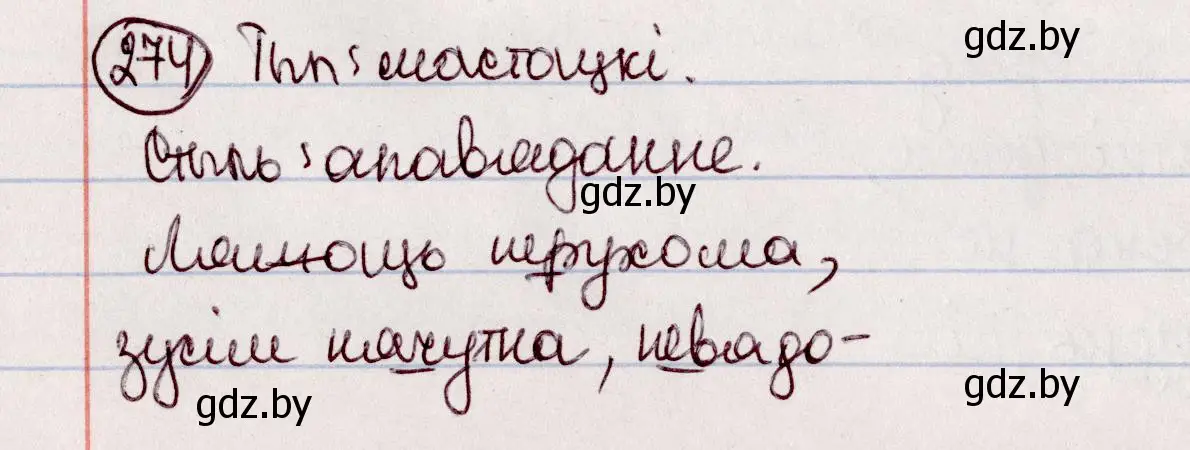 274 Тып: мастацкі.
gdz.by
Стыль: апавяданне.
gdz.by
нерухома,
зусім нячутна, невядо-
gdz.by
gdz.by